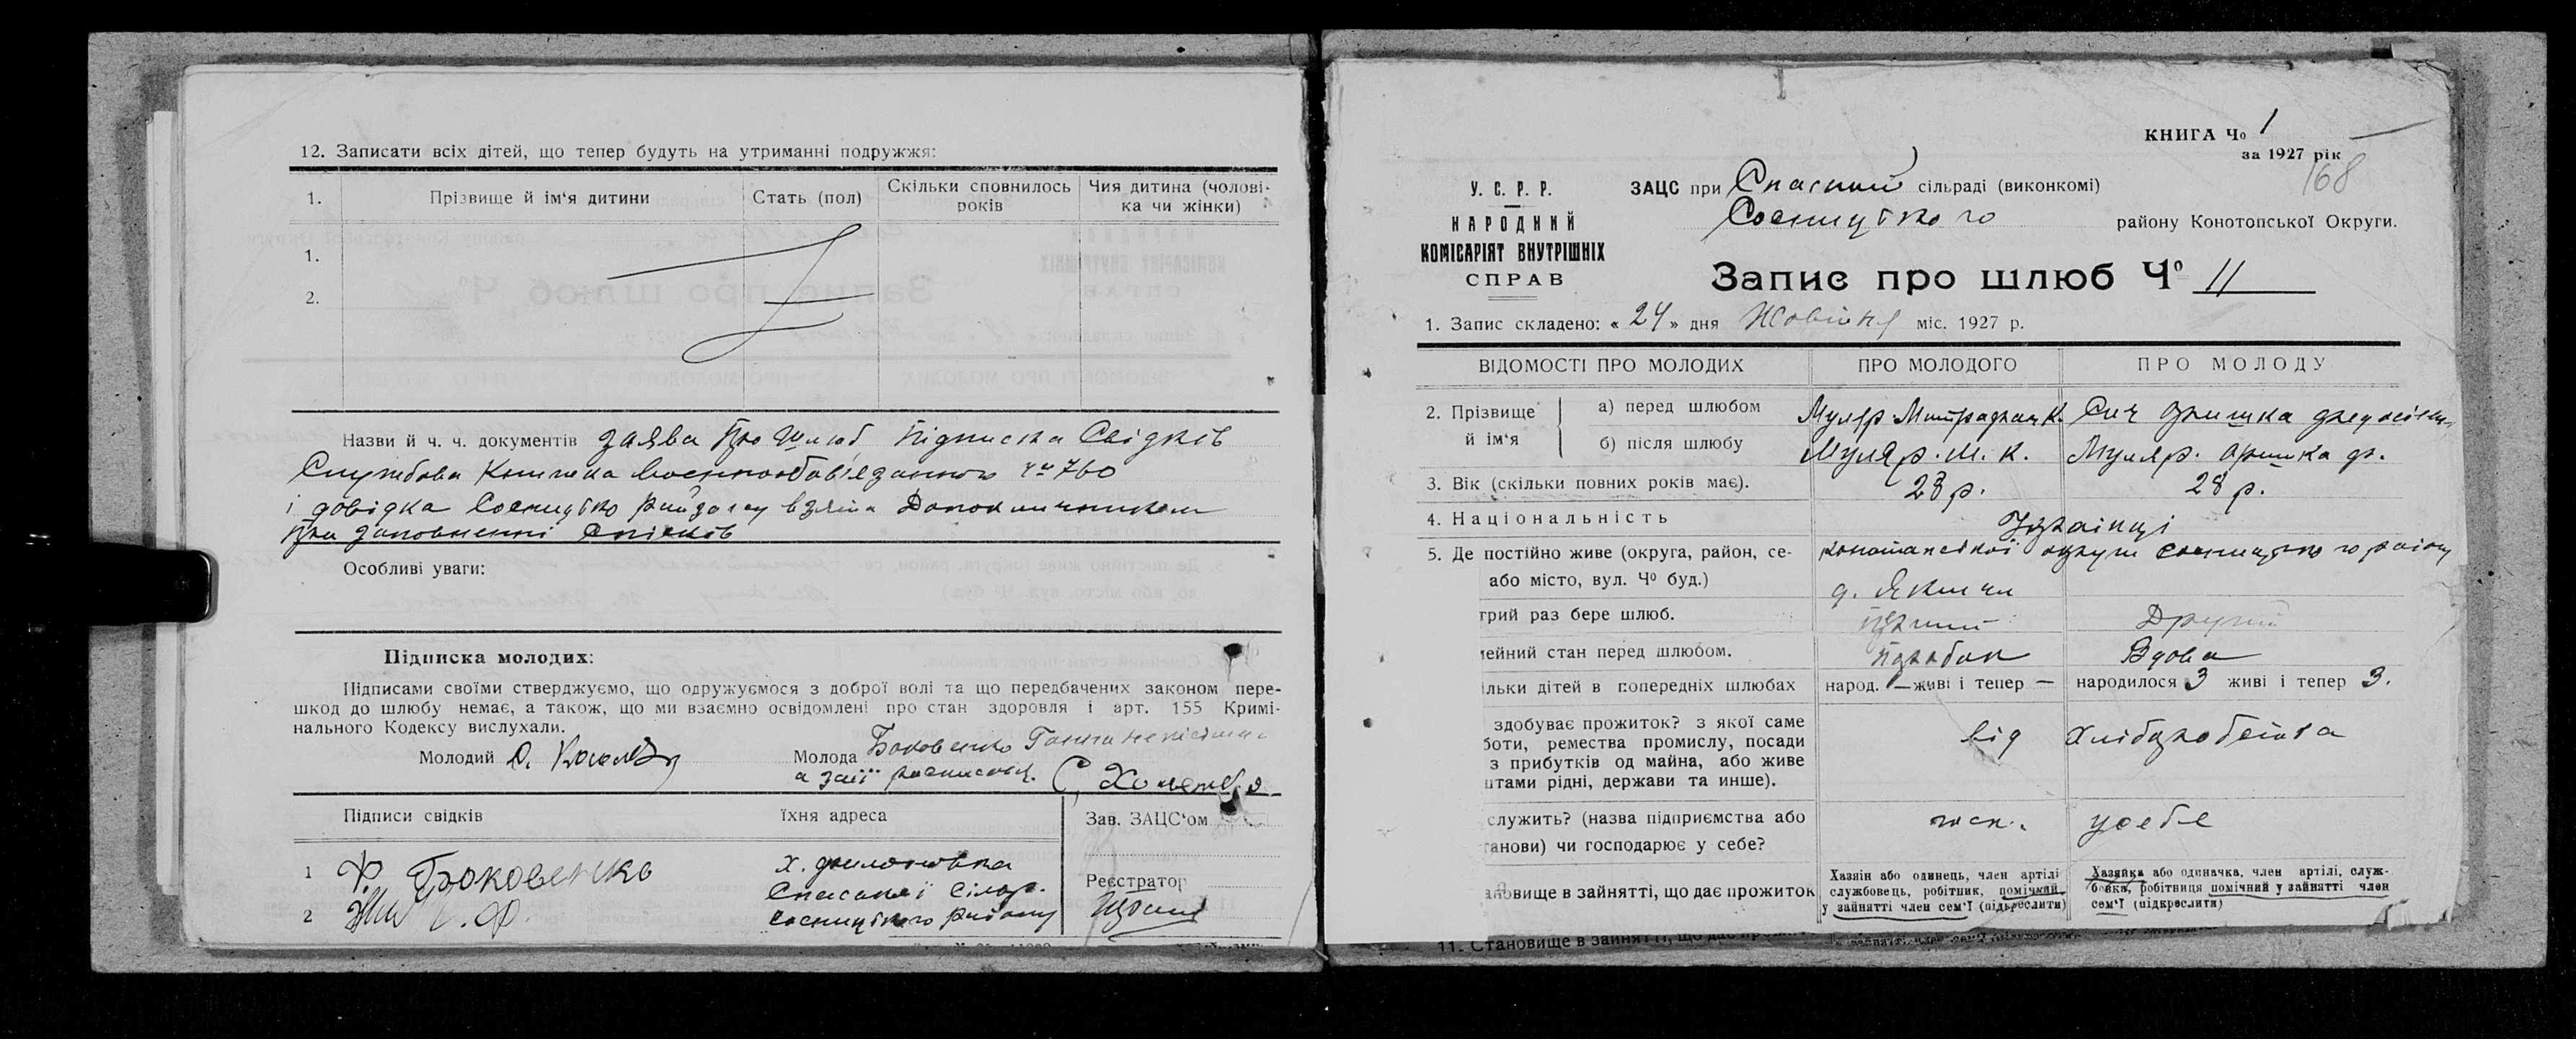 12. Записати всіх дітей, що тепер будуть на утриманні подружжя:
1. Прізвище й ім‘я дитини Стать (пол) Скільки сповнилось років Чия дитина (чолові-ка чи жінки)
1.
2.
Назви й ч. ч. документів заява про шлюб підписка свідків
Службова книжка военнообов'язаного чо 760
і довідка Сосницько
при заповненні списків
Особливі уваги:
Підписка молодих:
Підписами своїми стверджуємо, що одружуємося з доброї волі та що передбачених законом пере-
шкод до шлюбу немає, а також, що ми взаємно освідомлені про стан здоровля і арт. 155 Кримі-
нального Кодексу вислухали.
Молодий Молода Боковенко Ганна неписьмен
а за її росписався
Підписи свідків їхня адреса Зав. ЗАЦС‘ом
1 Ф. Боковенко х.
Спаської Сільр. Реєстратор
2 Сосницького району
КНИГА Чо 1
за 1927 рік
168
У. С. Р. Р.
НАРОДНИЙ
КОМІСАРІЯТ ВНУТРІШНІХ
СПРАВ
ЗАЦС при Спаській сільраді (виконкомі)
Сосницького району Конотопської Округи.
Запис про шлюб Чо 11
1. Запис складено: « 24 » дня Жовтня міс. 1927 р.
ВІДОМОСТІ ПРО МОЛОДИХ ПРО МОЛОДОГО ПРО МОЛОДУ
2. Прізвище й ім‘я а) перед шлюбом Муляр Митрафан К. Сич Оришка
б) після шлюбу Муляр. М. К. Муляр. Оришка Ф.
3. Вік (скільки повних років має). 23 р. 28 р.
4. Національність Українці
5. Де постійно живе (округа, район, се- Конотопської округи Сосницького району
або місто, вул. Чо буд.) д. Якличи
трий раз бере шлюб. Перший Другий
мейний стан перед шлюбом. Парубок Вдова
ільки дітей в попередніх шлюбах народ. — живі і тепер — народилося 3 живі і тепер 3.
здобуває прожиток? з якої саме
боти, ремества промислу, посади від хліборобства
з прибутків од майна, або живе
штами рідні, держави та инше).
служить? (назва підприємства або госп. у себе
танови) чи господарює у себе?
ановище в зайнятті, що дає прожиток
Хазяін або одинець, член артілі
службовець, робітник, помічний
у зайнятті член сем‘ї (підкреслити)
Хазяйка або одиначка, член артілі, служ-
бовка, робітниця помічний у зайнятті член
сем‘ї (підкреслити)
11. Становище в зайнятті, що дає